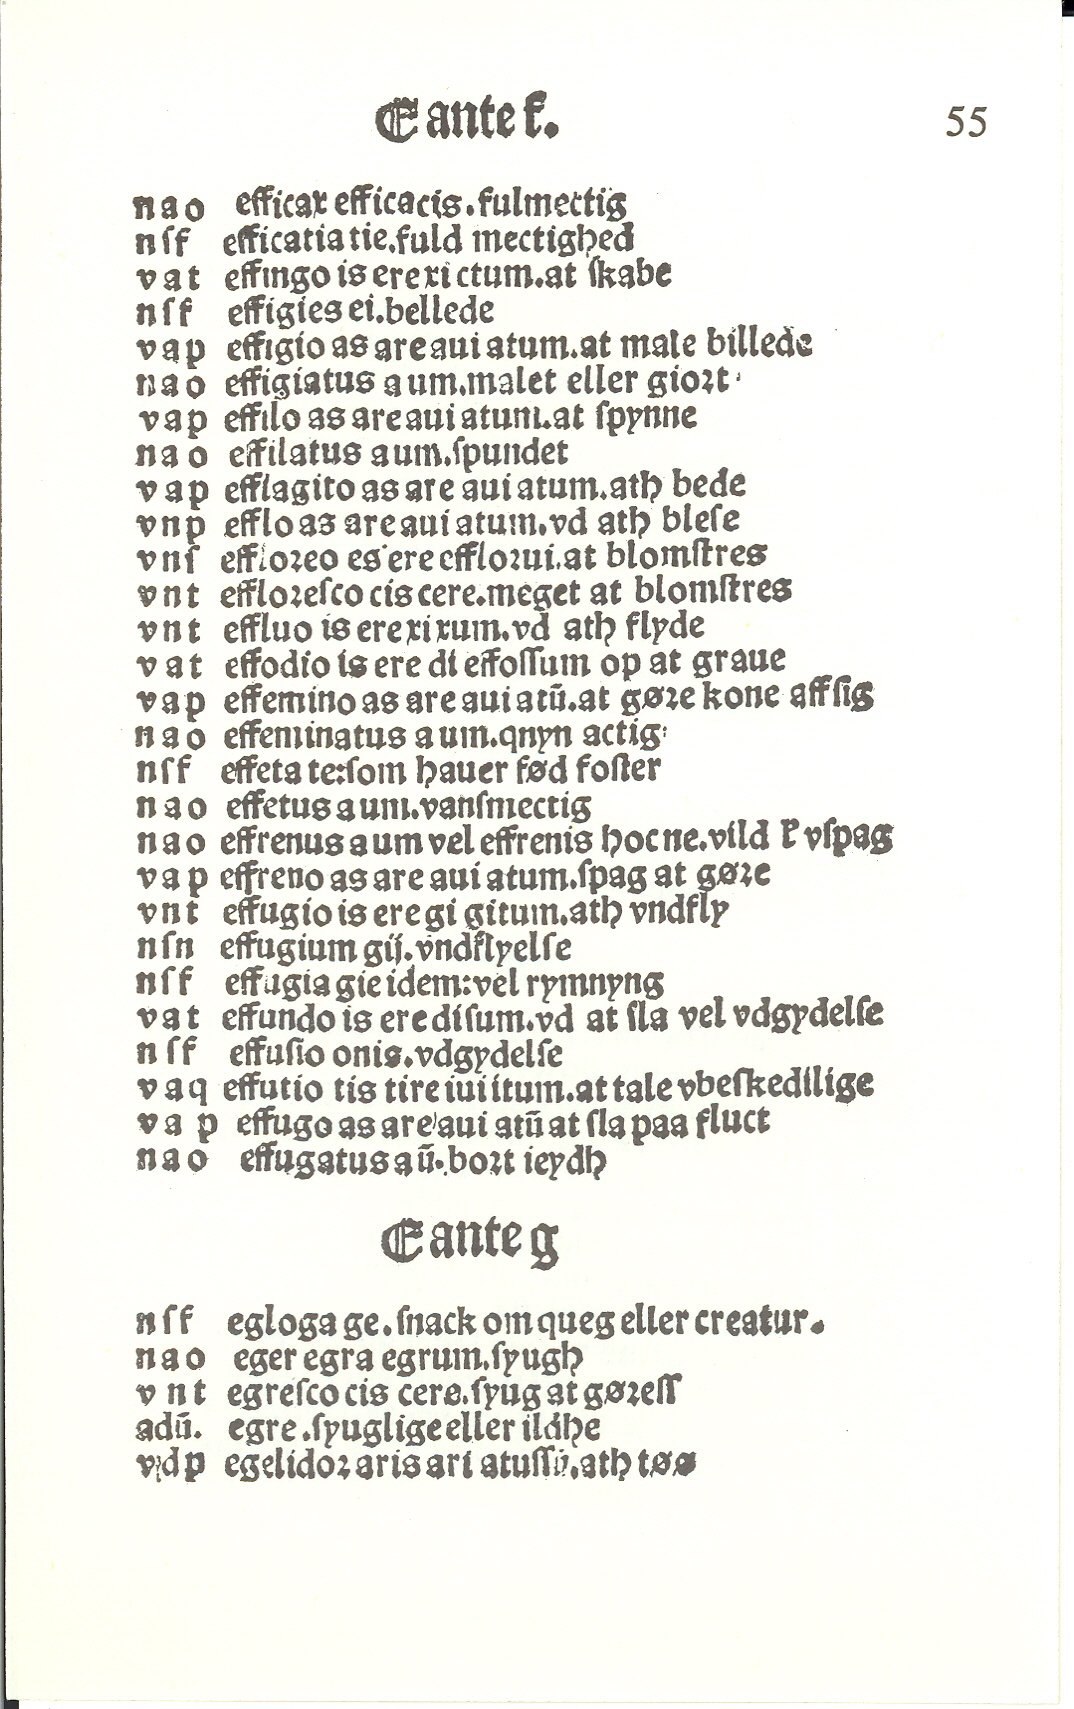 E ante f.
55
nao efficax efficacis.fulmectig
nſf efficatia tie.fuld mectighed
vat effingo is ere xi ctum.at ſkabe
nſf effigies ei.bellede
vap effigio as are aui atum.at male billede
nao effigiatus a um.malet eller gioꝛt
vap effilo as are aui atum.at ſpynne
nao effilatus a um.ſpundet
vap efflagito as are aui atum.ath bede
vnp efflo as are aui atum.vd ath bleſe
vnſ effloꝛeo es ere effloꝛui.at blomſtres
vnt effloꝛeſco cis cere.meget at blomſtres
vnt effluo is ere xi xum.vd ath flyde
vat effodio is ere di effoſſum op at graue
vap effemino as are aui atū.at gøꝛe kone aff ſig
nao effeminatus a um.qnyn actig
nſf effeta te:ſom hauer fød foſter
nao effetus a um.vanſmectig
nao effrenus a um vel effrenis hoc ne.vild ꝛ vſpag
vap effreno as are aui atum.ſpag at gøꝛe
vnt effugio is ere gi gitum.ath vndfly
nſn effugium gij.vndflyelſe
nſf effugia gie idem:vel rymnyng
vat effundo is ere di ſum.vd at ſla vel vdgydelſe
nſf effuſio onis.vdgydelſe
vaq effutio tis tire iui itum.at tale vbeſkedilige
vap effugo as are aui atū at ſla paa fluct
nao effugatus a ū.boꝛt ieydh
E ante g
nſf egloga ge.ſnack om queg eller creatur.
nao eger egra egrum.ſyugh
vnt egreſco cis cere.ſyug at gøꝛeſſ
adū. egre.ſyuglige eller ildhe
vdp egelidoꝛ aris ari atuſſū.ath tøø